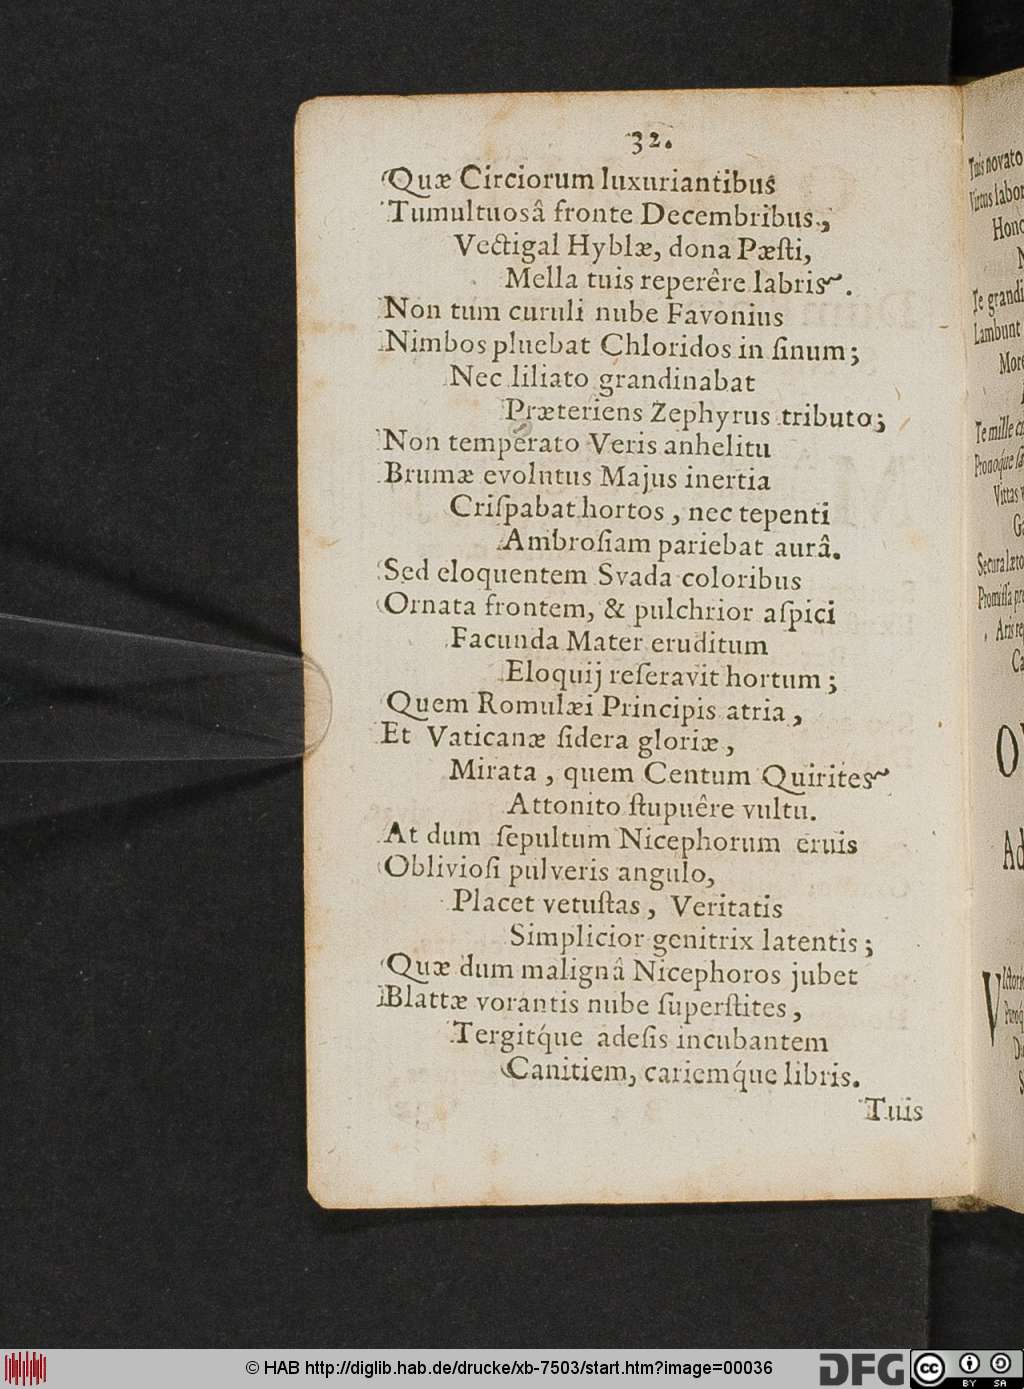 32.
Quæ Circiorum luxuriantibus
Tumultuosâ fronte Decembribus,
Vectigal Hyblæ, dona Pæſti,
Mella tuis reperêre labris.
Non tum curuli nube Favonius
Nimbos pluebat Chloridos in ſinum;
Nec liliato grandinabat
Præteriens Zephyrus tributo;
Non temperato Veris anhelitu
Brumæ evolutus Majus inertia
Criſpabat hortos, nec tepenti
Ambroſiam pariebat aurâ.
Sed eloquentem Svada coloribus
Ornata frontem, & pulchrior aſpici
Facunda Mater eruditum
Eloquij reſeravit hortum;
Quem Romulæi Principis atria,
Et Vaticanæ ſidera gloriæ,
Mirata, quem Centum Quirites
Attonito ſtupuêre vultu.
At dum ſepultum Nicephorum eruis
Oblivioſi pulveris angulo,
Placet vetuſtas, Veritatis
Simplicior genitrix latentis;
Quæ dum malignâ Nicephoros jubet
Blattæ vorantis nube ſuperſtites,
Tergitq́ue adeſis incubantem
Canitiem, cariemq́ue libris.
Tuis
Tuis novato
Virtus labor
Te grandi
Lambunt
Te mille
Vittas
© HAB http://diglib.hab.de/drucke/xb-7503/start.htm?image=00036
DFG
cc
BY SA